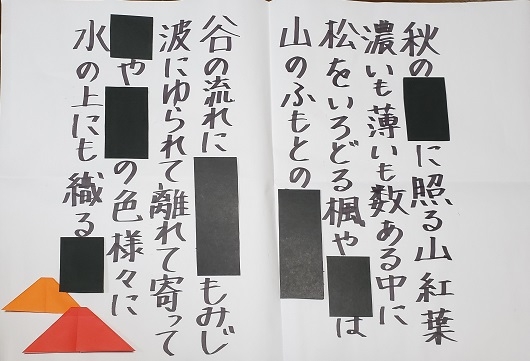 秋の に照る山紅葉
濃いも薄いも数ある中に
松をいろどる楓や は
山のふもとの
谷の流れに もみじ
波にゆられて離れて寄って
 や の色様々に
水の上にも織る